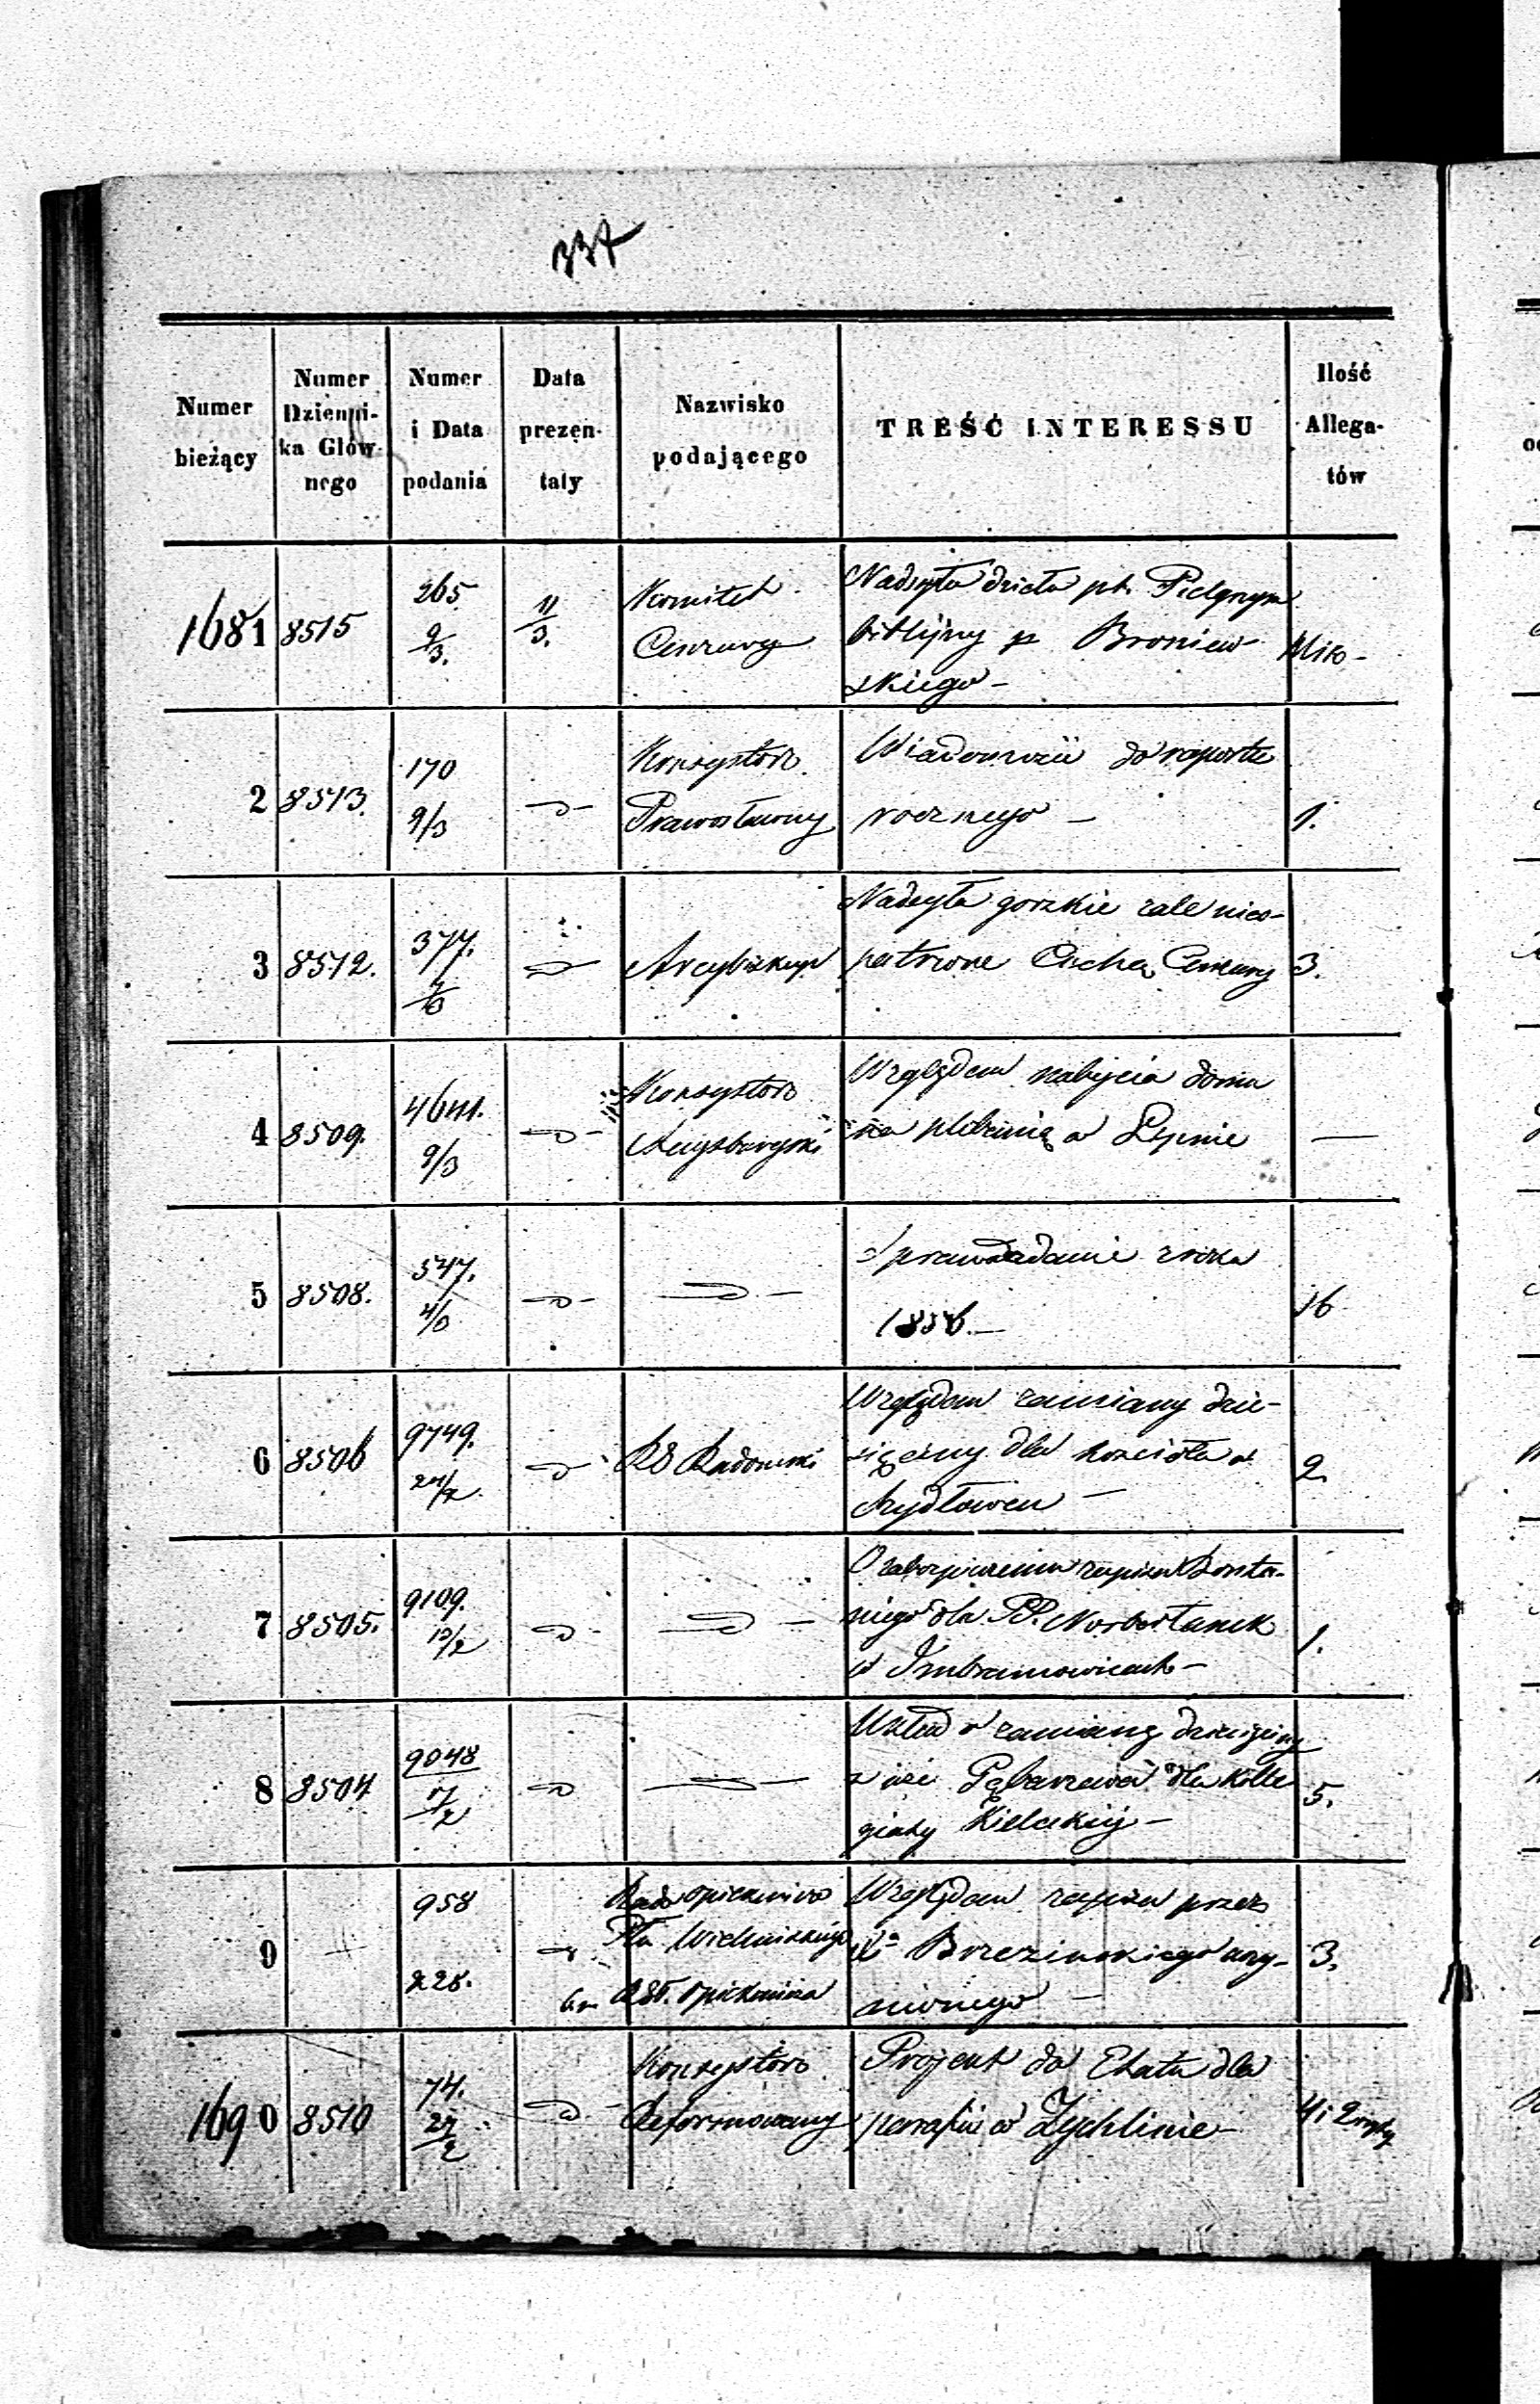 337
Numer bieżący
Numer Dzienni-ka Głów-nego
Numer i Data podania
Data prezen-taty
Nazwisko podającego
TREŚĆ INTERESSU
Ilość Allega-tów
1681 8515 265 9/3. 11/3. Komitet Cenzury
Nadsyła dzieła pt. Pielgrzym
biblijny p Broniew-
skiego –
2 8513. 170 9/3 –"– Konsystorz Prawosławny
Wiadomości do raportu
rocznego – 1.
3 8512. 377. 7/3 –"– Arcybiskup
Nadsyła gorzkie żale nieo-
patrzone Cechą Cenzury 3.
4 8509. 4641. 9/3 –"– Konsystorz Augsburgski
Względem nabycia domu
na plebanię w Lipnie –
5 8508. 547. 4/3 –"– –"–
Sprawozdanie z roku
1856. – 16
6 8506 9749. 24/2. –"– RG Radomski
Względem zamiany dzie-
sięciny dla kościoła w
Szydłowcu – 2
7 8505. 9109. 19/2 –"– –"–
O zabezpieczeniu zapisu
niego dla PP. Norbertanek
w Imbramowicach – 1.
8 8504 9048 17/2 –"– –"–
Układ o zamianę dziesięciny
z wsi dla Kolle
giaty Kieleckiej – 5.
9 – 958 228. –"– Rada opiekuńcza
Ptu Wieluńskiego
opiekuńcza
Względem zapisu przez
Brzezinskiego uczy-
nionego – 3.
1690 8510 74. 27/2 –"– Konsystorz Reformowany
Projekt do Etatu dla
parafii w Żychlinie – 4 i 2